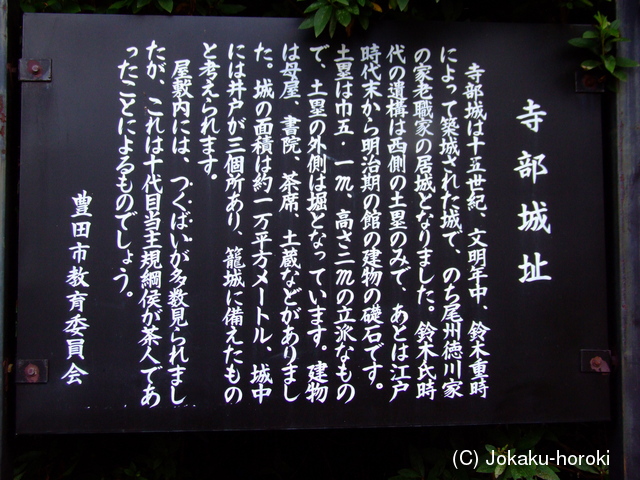 寺部城址
寺部城は十五世紀、文明年中、鈴木重時
によって築城された城で、のち尾州徳川家
の家老職家の居城となりました。鈴木氏時
代の遺構は西側の土塁のみで、あとは江戸
時代末から明治期の館の建物の礎石です。
土塁は巾五・一m 高さ二mの立派なもの
で、土塁の外側は堀となっています。建物
は母屋、書院、茶席、土蔵などがありまし
た。城の面積は約一万平方メートル、城中
には井戸が三個所あり、籠城に備えたもの
と考えられます。
屋敷内には、つくばいが多数見られまし
たが、これは十代目当主規綱侯が茶人であ
ったことによるものでしょう。
豊田市教育委員会
(C) Jokaku-horoki